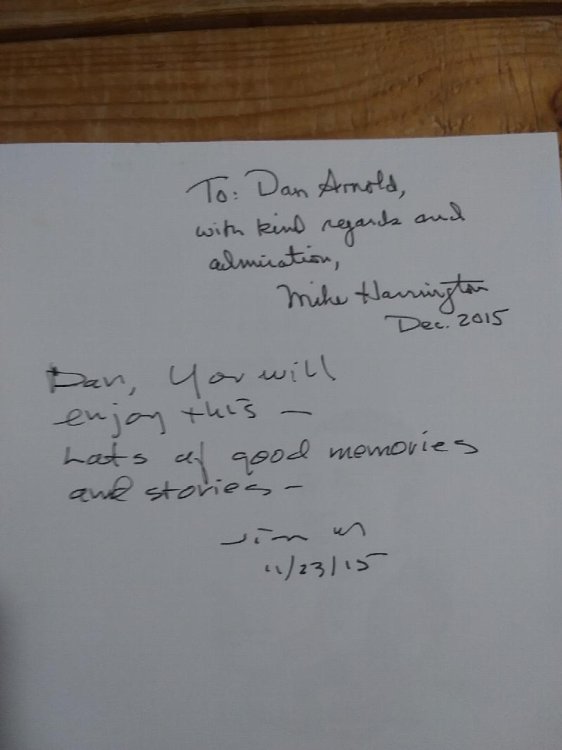 To: Dan Arnold,
with kind regards and
admiration,
Mike Harrington
Dec. 2015
Dan, You will
enjoy this —
Lots of good memories
and stories —
Jim M
11/23/15